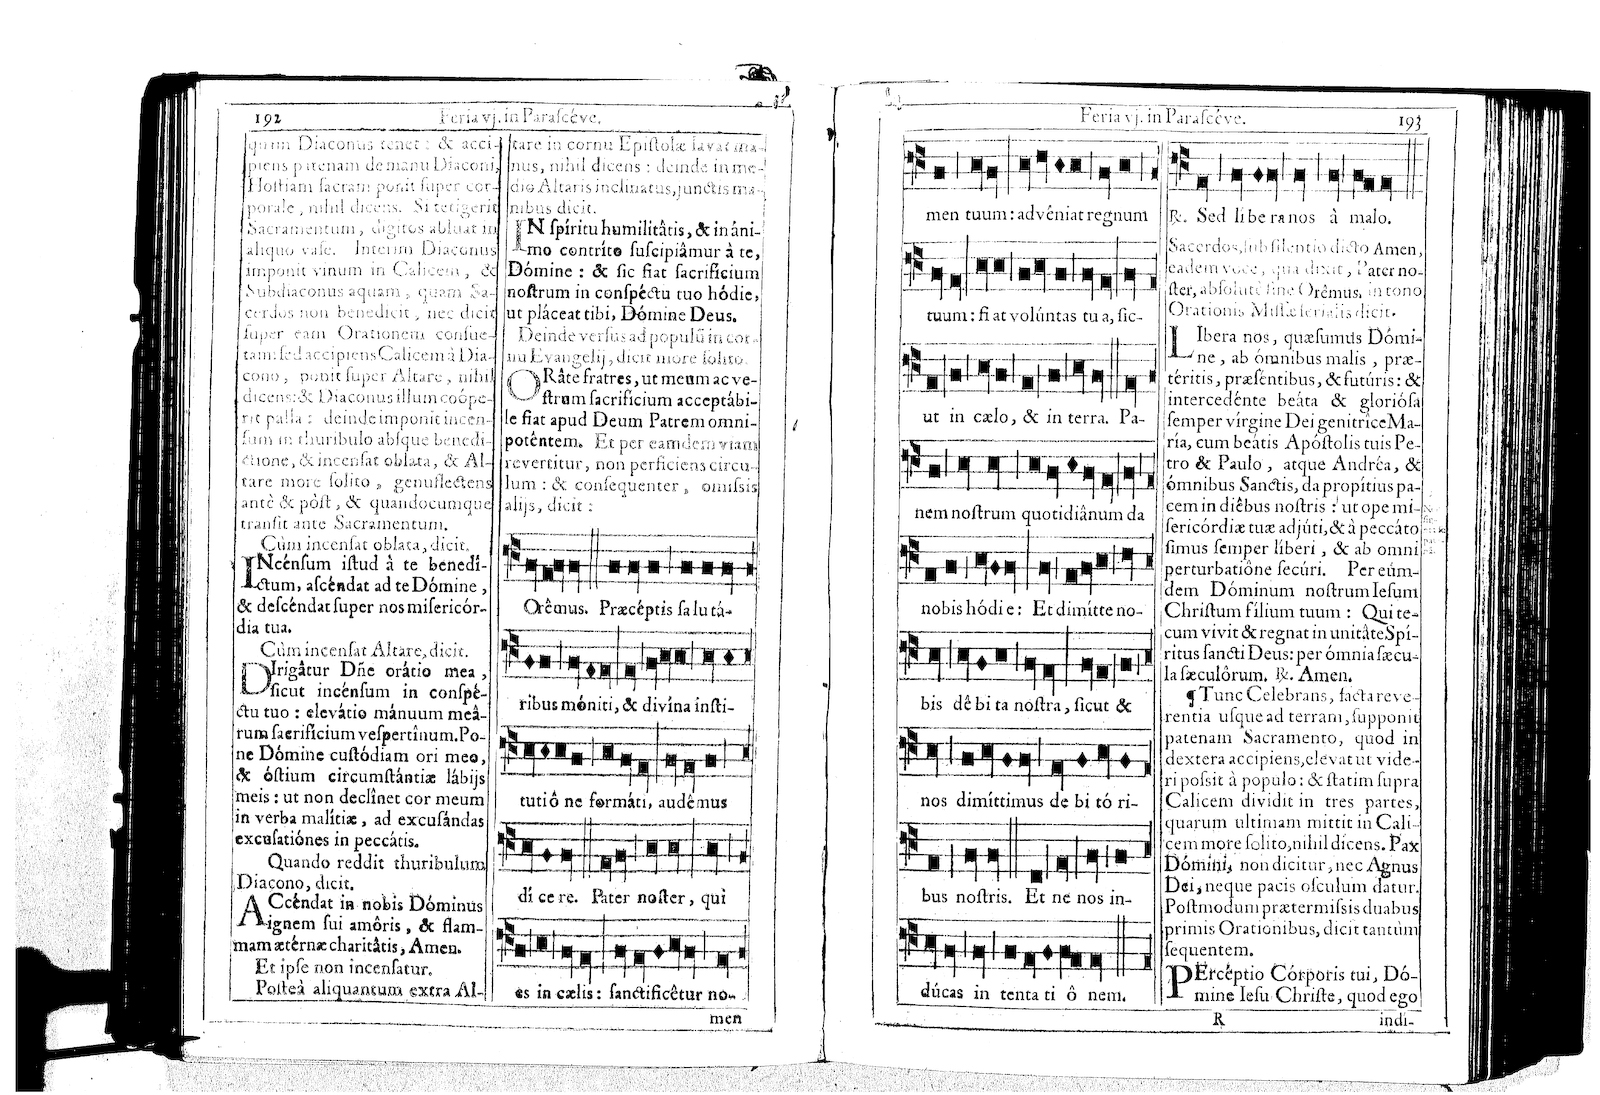 192
Feria vj. in Parascéve.
quam Diaconus tenet : & acci-
piens patenam de manu Diaconi,
Hostiam sacram ponit super cor-
porale, nihil dicens. Si tetigerit
Sacramentum, digitos abluat in
aliquo vase. Interim Diaconus
imponit vinum in Calicem, &
Subdiaconus aquam, quam Sa-
cerdos non benedicit, nec dicit
super eam Orationem consue-
tam: sed accipiens Calicem à Dia-
cono, ponit super Altare, nihil
dicens: & Diaconus illum coöpe-
rit palla : deinde imponit incen-
sum in thuribulo absque benedi-
ctione, & incensat oblata, & Al-
tare more solito, genuflectens
antè & pòst, & quandocumque
transit ante Sacramentum.
Cùm incensat oblata, dicit.
INcénsum istud à te benedí-
ctum, ascéndat ad te Dómine,
& descéndat super nos misericór-
dia tua.
Cùm incensat Altare, dicit.
DIrigâtur Dñe orátio mea,
sicut incénsum in conspé-
ctu tuo : elevátio mánuum meâ-
rum sacrificium vespertînum. Po-
ne Dómine custódiam ori meo,
& óstium circumstántiæ lábijs
meis : ut non declînet cor meum
in verba malítiæ, ad excusándas
excusatiónes in peccátis.
Quando reddit thuribulum
Diacono, dicit.
ACcéndat in nobis Dóminus
ignem sui amôris, & flam-
mam ætérnæ charitâtis, Amen.
Et ipse non incensatur.
Posteà aliquantum extra Al-
tare in cornu Epistolæ lavat ma-
nus, nihil dicens : deinde in me-
dio Altaris inclinatus, junctis ma-
nibus dicit.
IN spíritu humilitâtis, & in áni-
mo contríto suscipiâmur à te,
Dómine : & sic fiat sacrifícium
nostrum in conspéctu tuo hódie,
ut pláceat tibi, Dómine Deus.
Deinde versus ad populũ in cor-
nu Evangelij, dicit more solito.
ORâte fratres, ut meum ac ve-
strum sacrificium acceptábi-
le fiat apud Deum Patrem omni-
poténtem. Et per eamdem viam
revertitur, non perficiens circu-
lum : & consequenter, omissis
alijs, dicit :
Orêmus. Præcéptis salutá-
ribus móniti, & divína insti-
tutiô ne formáti, audémus
dí ce re. Pater noster, qui
es in cælis : sanctificêtur no-
men
Feria vj. in Parascéve.
193
men tuum : advéniat regnum
tuum : fi at volúntas tu a, sic-
ut in cælo, & in terra. Pa-
nem nostrum quotidiânum da
nobis hódi e : Et dimítte no-
bis dê bi ta nostra, sicut &
nos dimíttimus de bi tó ri-
bus nostris. Et ne nos in-
dúcas in tenta ti ô nem.
℟. Sed líbe ra nos à malo.
Sacerdos, sub silentio dicto Amen,
eadem voce, qua dixit, Pater no-
ster, absolutè sine Orêmus, in tono
Orationis Missæ ferialis dicit.
LIbera nos, quæsumus Dómi-
ne, ab ómnibus malis, præ-
téritis, præséntibus, & futúris : &
intercedénte beáta & gloriósa
semper vírgine Dei genitrice Ma-
ría, cum beátis Apóstolis tuis Pe-
tro & Paulo, atque Andréa, &
ómnibus Sanctis, da propítius pa-
cem in diêbus nostris : ut ope mi-
sericórdiæ tuæ adjúti, & à peccáto
simus semper líberi, & ab omni
perturbatiône secúri. Per eúm-
dem Dóminum nostrum Iesum
Christum fílium tuum : Qui te-
cum vivit & regnat in unitâte Spí-
ritus sancti Deus: per ómnia sæcu-
la sæculôrum. ℟. Amen.
¶ Tunc Celebrans, facta reve-
rentia usque ad terram, supponit
patenam Sacramento, quod in
dextera accipiens, elevat ut vide-
ri possit à populo : & statim supra
Calicem dividit in tres partes,
quarum ultimam mittit in Cali-
cem more solito, nihil dicens. Pax
Dómini, non dicitur, nec Agnus
Dei, neque pacis osculum datur.
Postmodum prætermissis duabus
primis Orationibus, dicit tantùm
sequentem.
PErcéptio Córporis tui, Dó-
mine Iesu Christe, quod ego
R
indi-